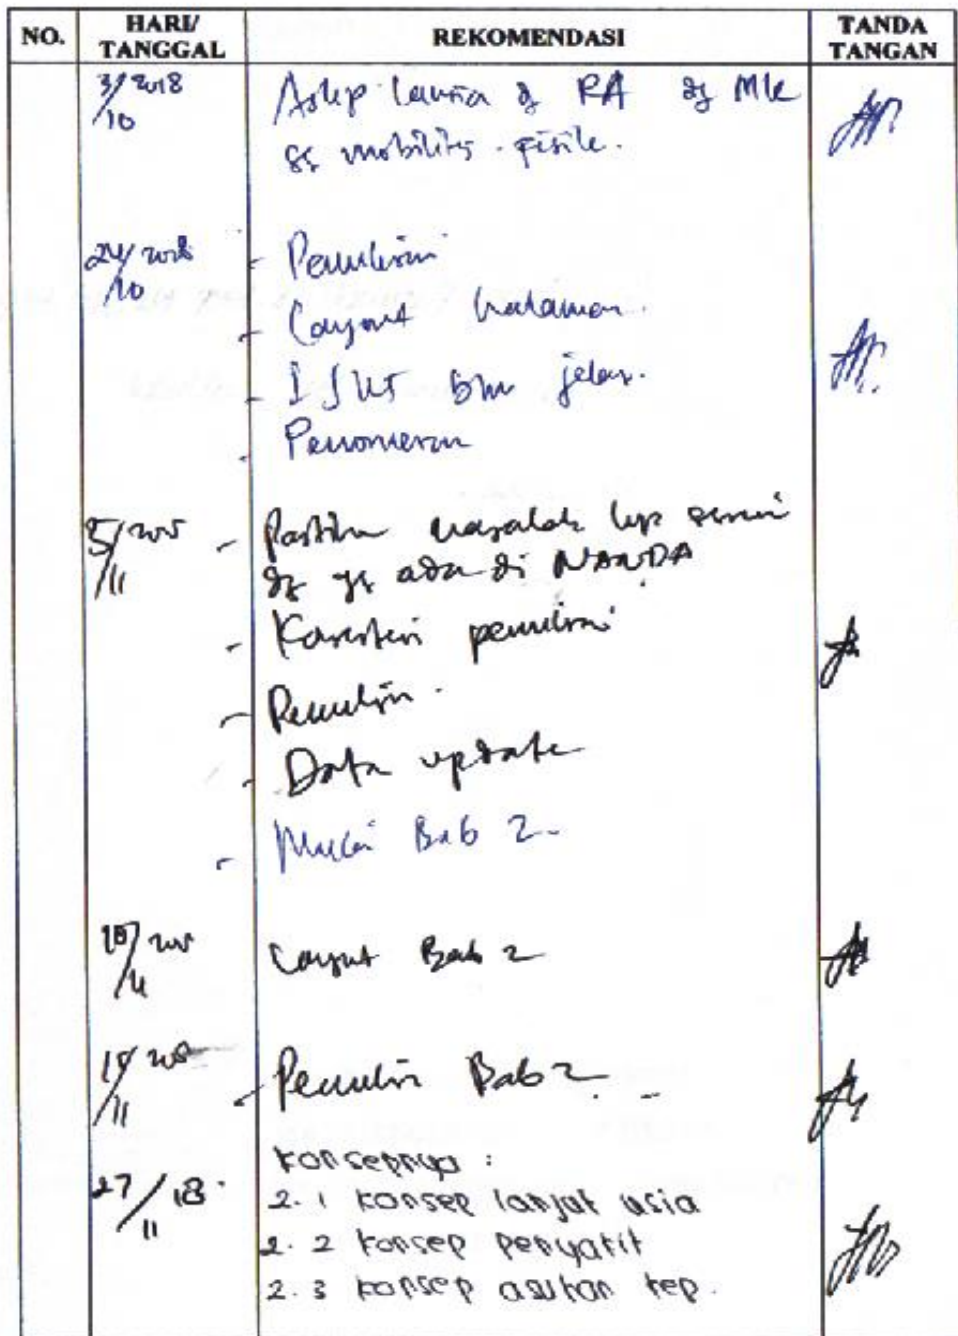 NO. HARI/ TANGGAL REKOMENDASI TANDA TANGAN
3/2018 /10 Askep lansia dg RA dg Mk
gg mobilitas fisik.
24/2018 /10 - Penulisan
- Layout halaman.
- ISUE blm jelas.
- Penomeran
5/2018 /11 - Pastikan masalah kep sesuai
dg yg ada di NANDA
- Konsistensi penulisan
- Penulisan.
- Data update
- Mulai Bab 2.
/11 Layout Bab 2
19/2018 /11 - Penulisan Bab 2
27/18. /11 konsepnya :
2.1 konsep lanjut usia
2.2 konsep penyakit
2.3 konsep asuhan kep.